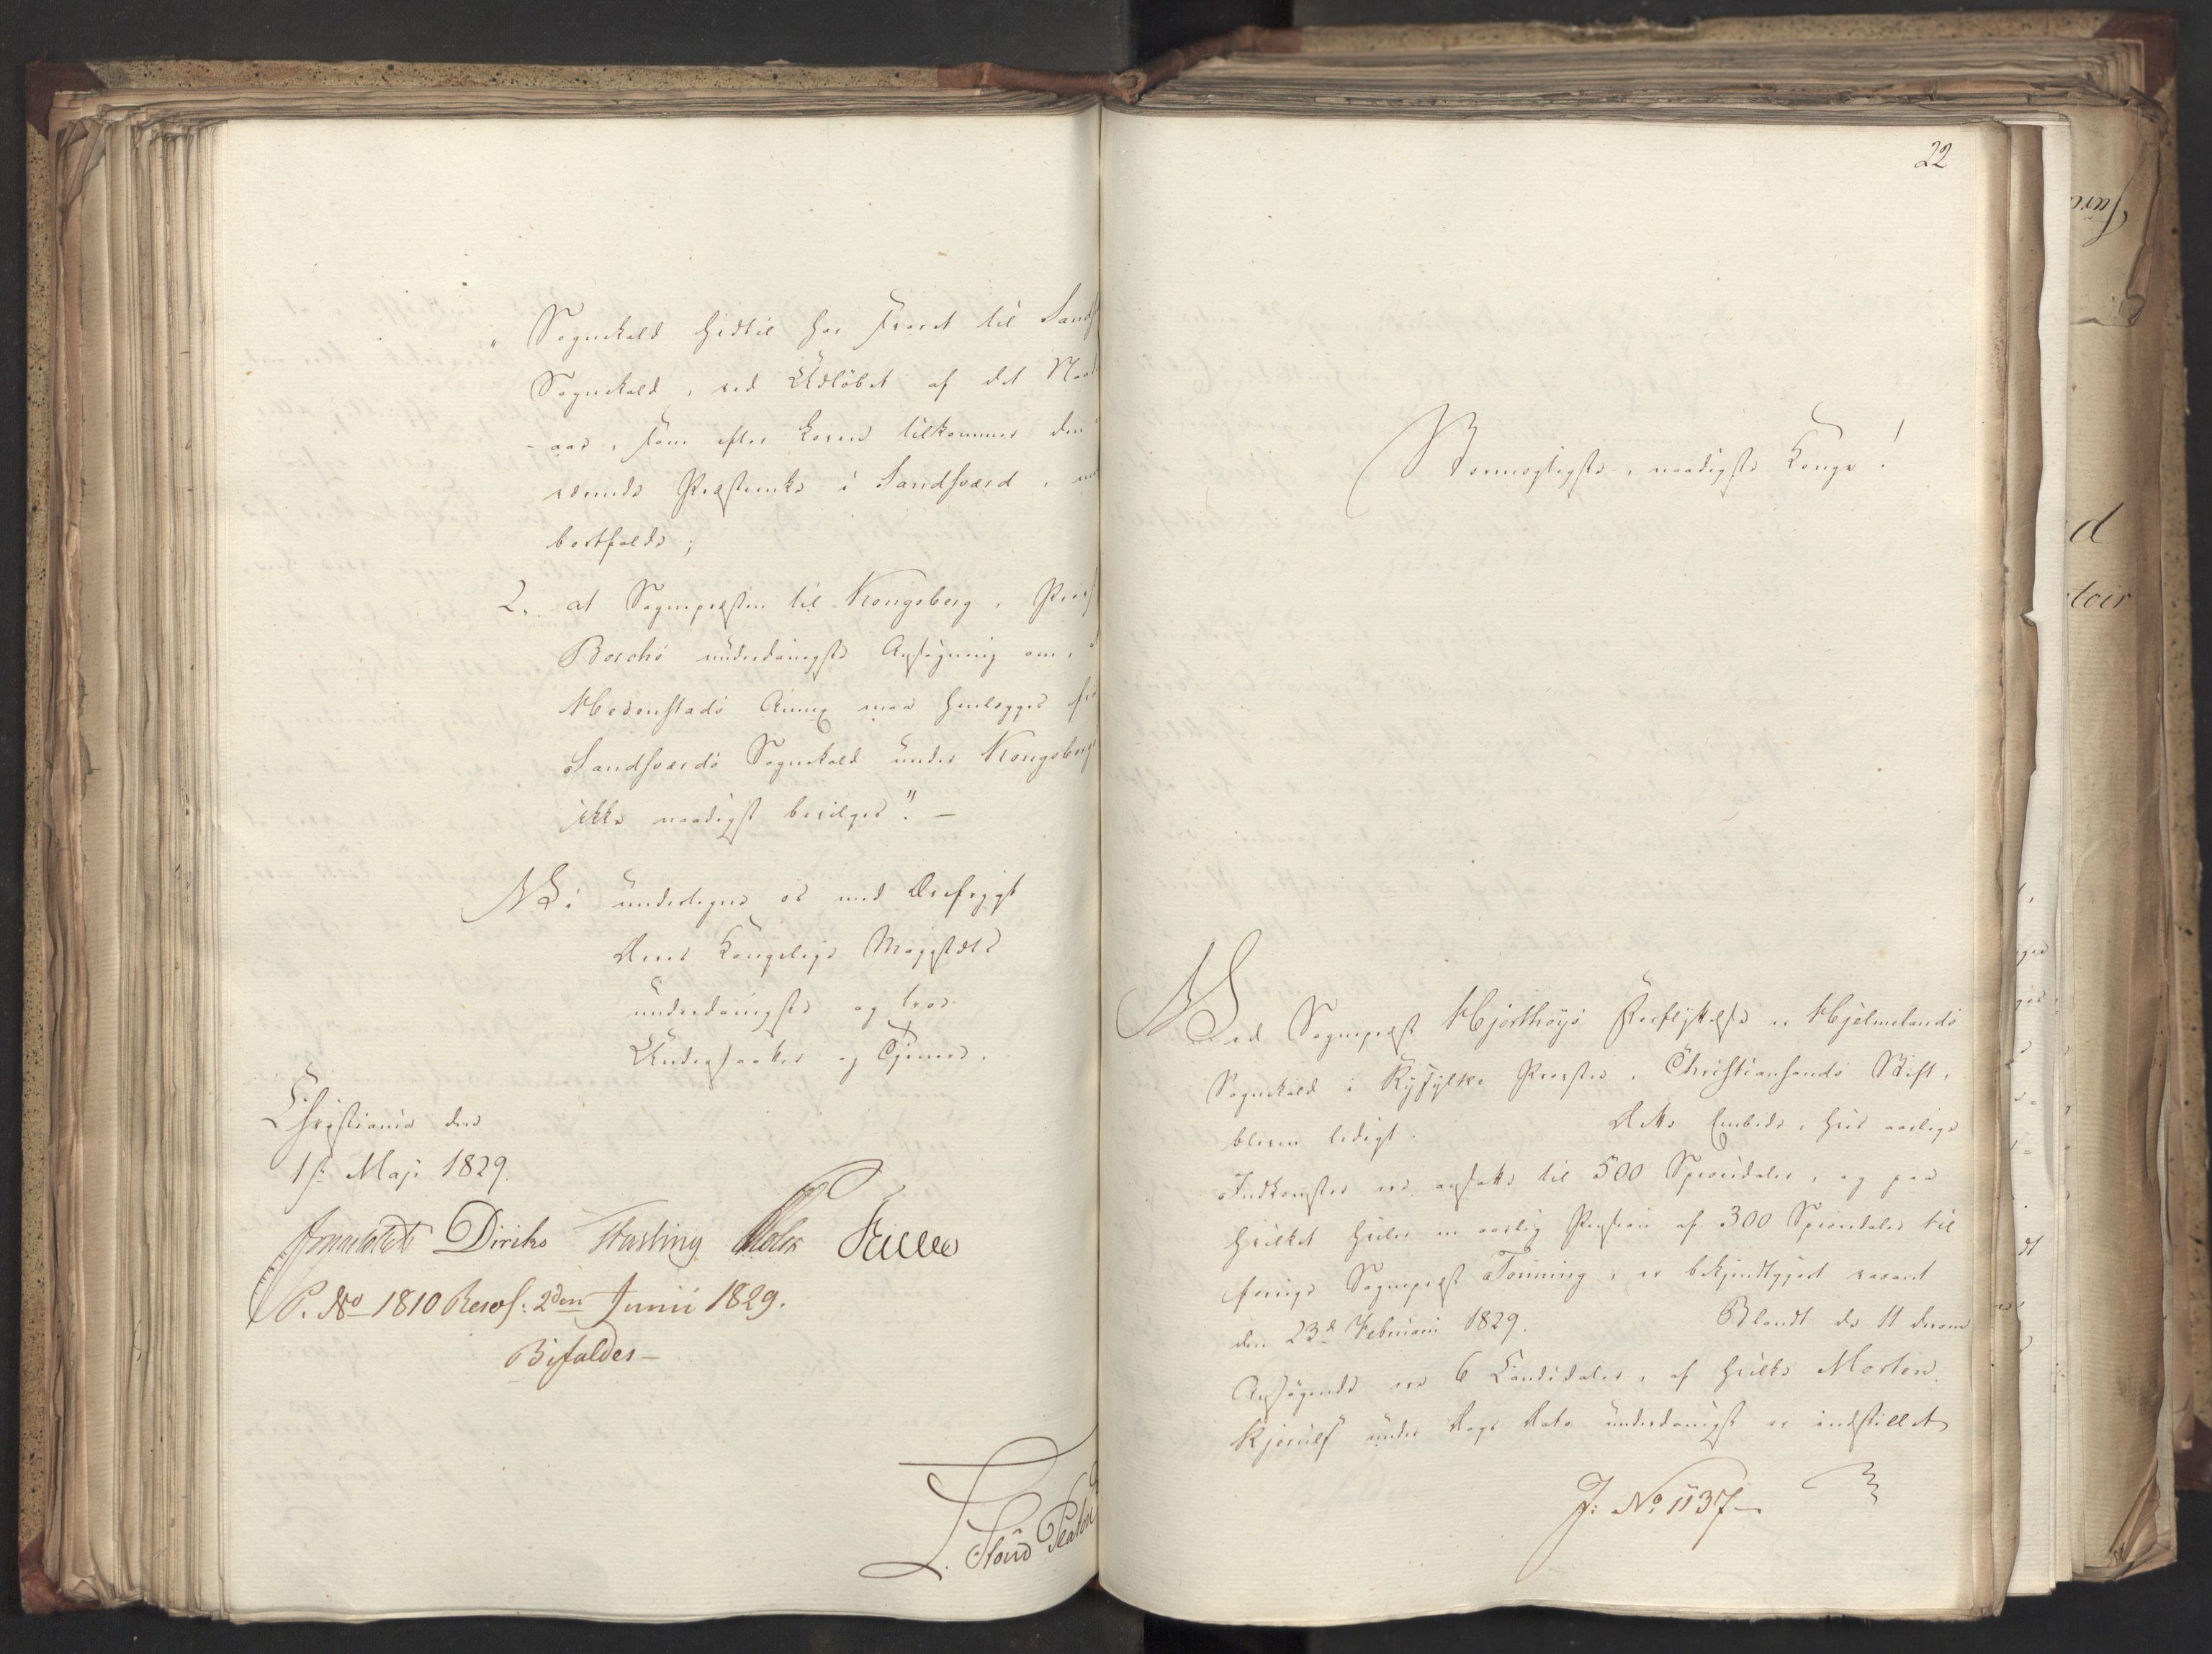 „ Sognekald hidtil har svaret til Sands
Sognekald, ved Udløbet af det Naad-
aar, som efter Loven tilkommer den
Præsteenke i Sandsværd,
bortfalde;
2. at Sognepræsten til Kongsberg, Provst
Borchs underdanigste Ansøgning om,
Hedenstads Annex maa henlægges fra
Sandsværds Sognekald under Kongsberg
ikke naadigst bevilges". —
Vi undertegne os med Ærefrygt
Deres Kongelige Majestæts
underdanigste og troe
Undersaatter og Tjenere.
Christiania den
1st Maji 1829.
Sommerhielm Diriks Fasting Holst Krieg
P. No 1810 Resol: 2den Junii 1829.
Bifaldes —
L. Stoud Platou
22
Stormægtigste, naadigste Konge!
Ved Sognepræst Hjorthøys Forflyttelse er Hjelmelands
Sognekald i Ryfylke Provstie, Christiansands Stift,
bleven ledigt. Dette Embede, hvis aarlige
Indkomster ere ansatte til 500 Speciedaler, og paa
hvilket hviler en aarlig Pension af 300 Speciedaler til
forrige Sognepræst Tønning, er bekjendtgjort vacant
den 23d Februarii 1829. Blandt de 11 derom
Ansøgende ere 6 Candidater, af hvilke Morten
Kjerulf under Dags Dato underdanigst er indstillet
J: No 1137 —